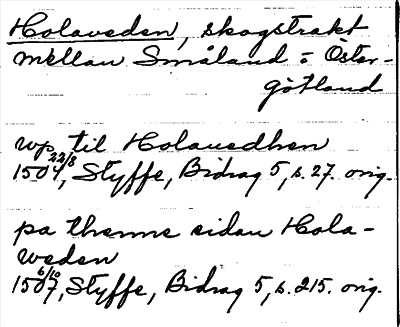 Holaveden, skogstrakt
mellan Småland o Öster-
götland
wp til Holauedhen
1504 22/8, Styffe, Bidrag 5, s. 27. orig.
pa thenne sidan Hola-
weden
1507 6/10, Styffe, Bidrag 5, s. 215. orig.